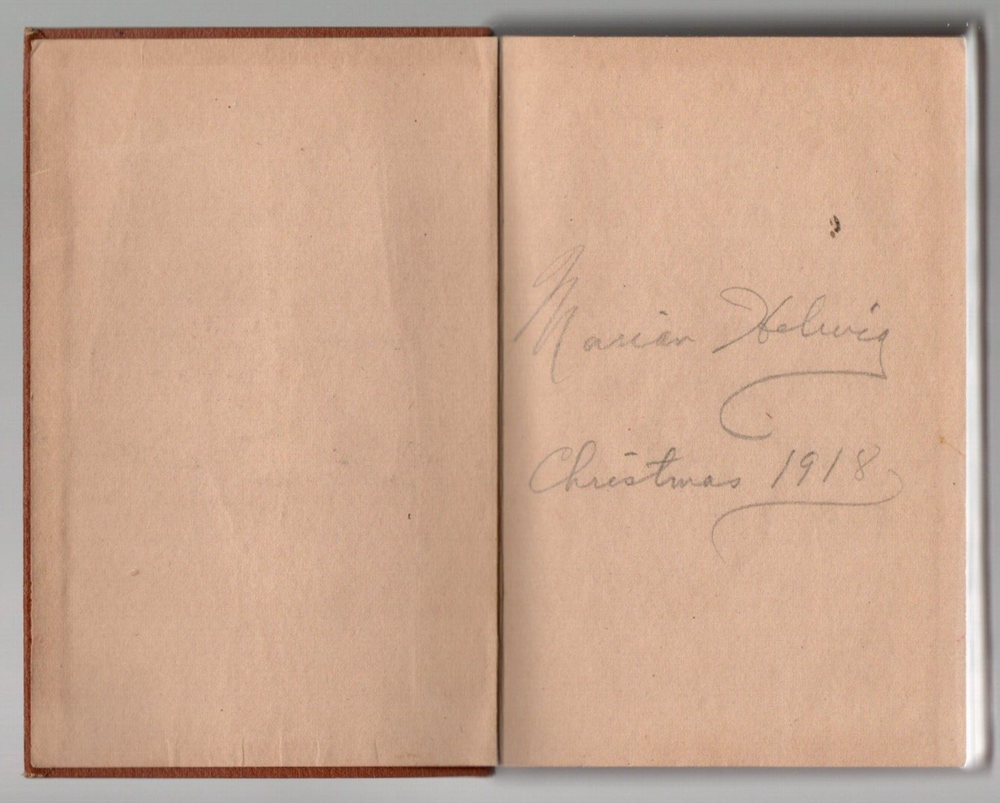 Marian Helwig
Christmas 1918